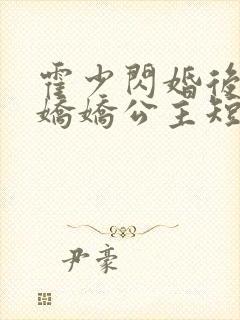 霍少閃婚後
嬌嬌公主短
尹豪